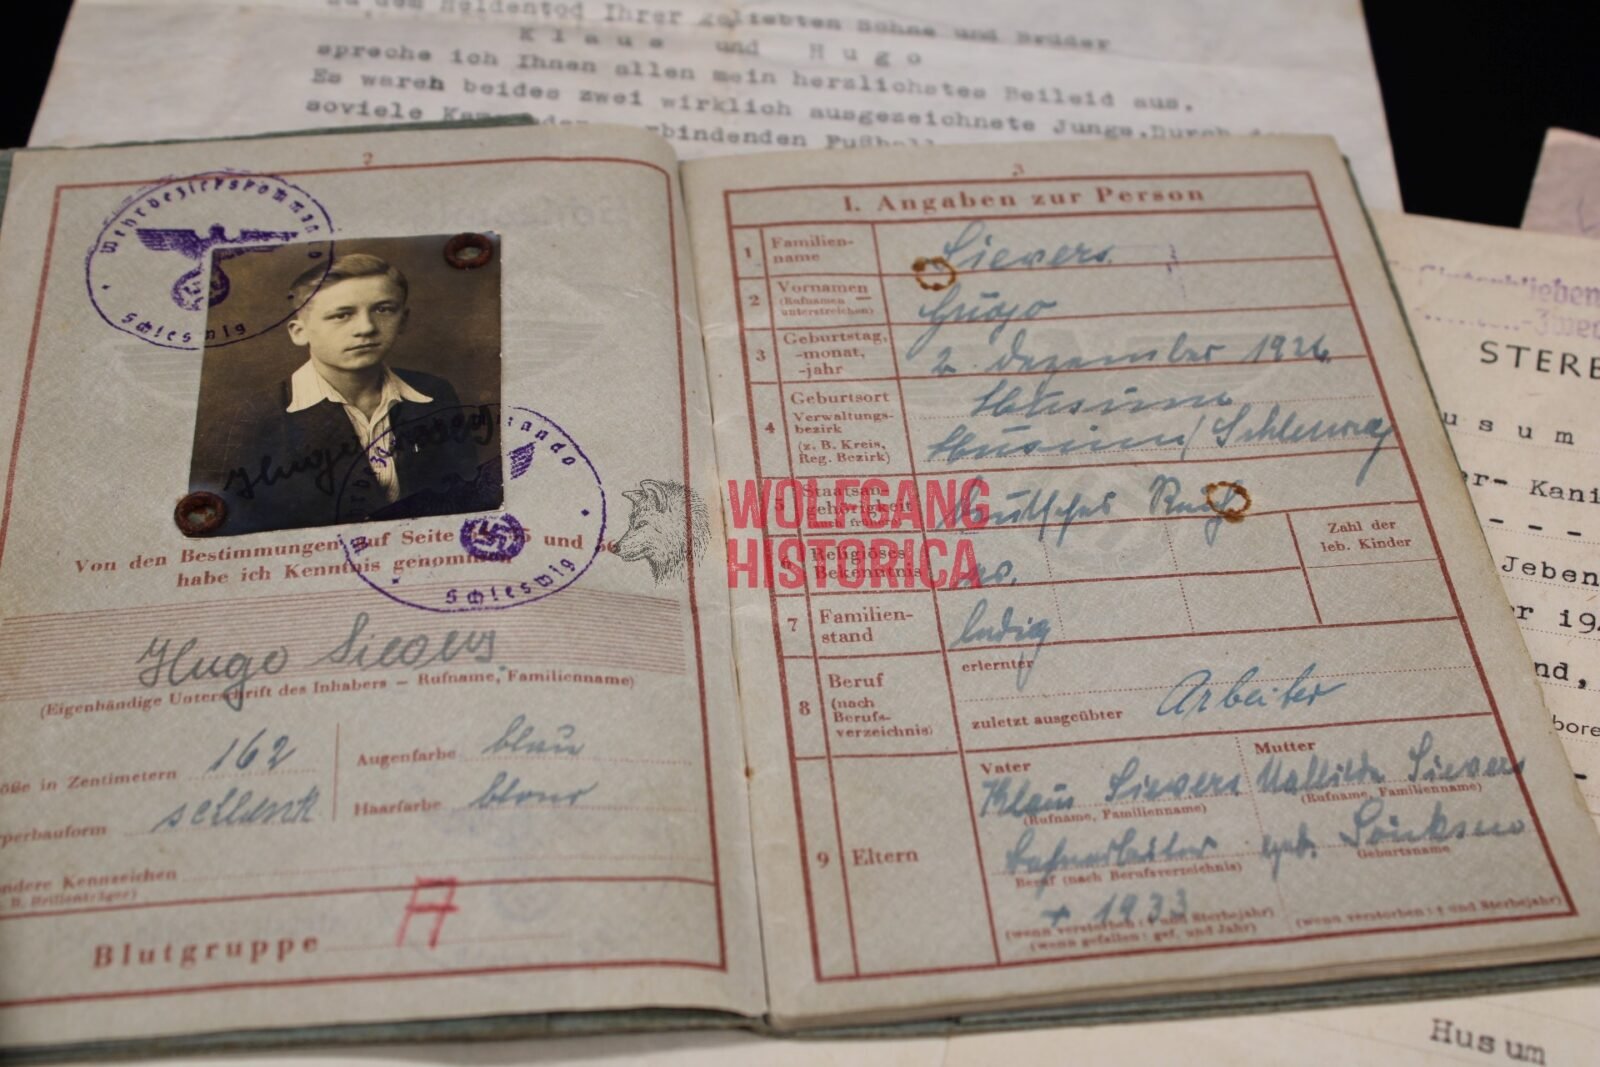 zu dem Heldentod Ihrer geliebten Söhne und Brüder
Klaus und Hugo
spreche ich Ihnen allen mein herzlichstes Beileid aus.
Es waren beides zwei wirklich ausgezeichnete Jungs. Durch
soviele
bindenden
2
Wehrbezirkskommando
Schleswig
Hugo Sievers
Schleswig
Von den Bestimmungen auf Seite und
habe ich Kenntnis genommen
Hugo Sievers
(Eigenhändige Unterschrift des Inhabers – Rufname, Familienname)
öße in Zentimetern 162
Augenfarbe blau
rperbauform schlank
Haarfarbe blond
ndere Kennzeichen
B. Brillenträger)
Blutgruppe A
3
I. Angaben zur Person
1 Familien-
name Sievers
2 Vornamen Hugo
(Rufnamen
unterstreichen)
3 Geburtstag,
-monat,
-jahr 2. Dezember 1926
4 Geburtsort Husum
Verwaltungs-
bezirk
(z. B. Kreis,
Reg. Bezirk) Husum / Schleswig
5 Staatsan-
gehörigkeit
(auch frühere) Deutsches Reich
6 Religiöses
Bekenntnis
Zahl der
leb. Kinder
7 Familien-
stand ledig
8 Beruf
(nach
Berufs-
verzeichnis)
erlernter
zuletzt ausgeübter Arbeiter
9 Eltern
Vater
Klaus Sievers
(Rufname, Familienname)
Beruf (nach Berufsverzeichnis)
+ 1933
(wenn verstorben: † und Sterbejahr)
(wenn gefallen: gef. und Jahr)
Mutter
Mathilde Sievers
(Rufname, Familienname)
geb. Sönksen
Geburtsname
(wenn verstorben: † und Sterbejahr)
WOLFGANG
HISTORICA
STERB
usum
er- Kani
Jeben
r 19
nd,
bore
Husum